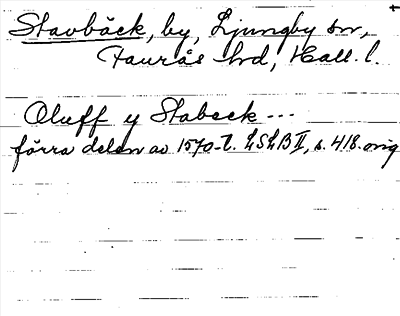 Stavbäck, by, Ljungby sn,
Faurås hrd, Hall. l.
Oluff y Stabeck ---
förra delen av 1570-t. LSLB II, s. 418. orig